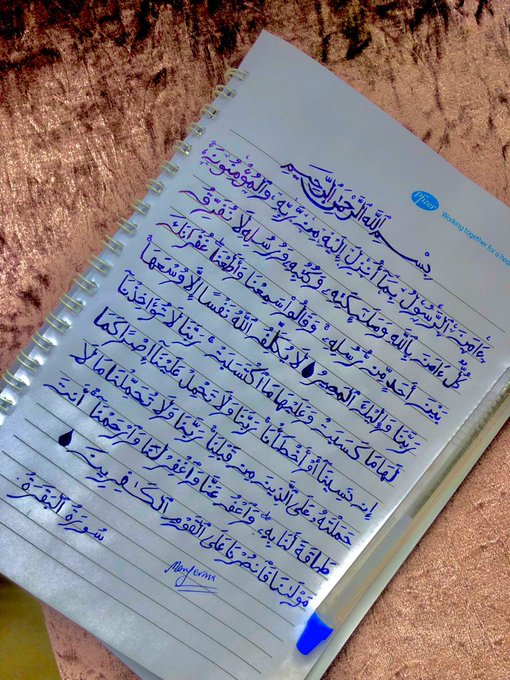 Pfizer
Working together for a
بِسْمِ ٱللَّهِ ٱلرَّحْمَٰنِ ٱلرَّحِيمِ
ءَامَنَ ٱلرَّسُولُ بِمَآ أُنزِلَ إِلَيْهِ مِن رَّبِّهِۦ وَٱلْمُؤْمِنُونَ ۚ
كُلٌّ ءَامَنَ بِٱللَّهِ وَمَلَٰٓئِكَتِهِۦ وَكُتُبِهِۦ وَرُسُلِهِۦ لَا نُفَرِّقُ
بَيْنَ أَحَدٍ مِّن رُّسُلِهِۦ ۚ وَقَالُوا۟ سَمِعْنَا وَأَطَعْنَا ۖ غُفْرَانَكَ
رَبَّنَا وَإِلَيْكَ ٱلْمَصِيرُ لَا يُكَلِّفُ ٱللَّهُ نَفْسًا إِلَّا وُسْعَهَا ۚ
لَهَا مَا كَسَبَتْ وَعَلَيْهَا مَا ٱكْتَسَبَتْ ۗ رَبَّنَا لَا تُؤَاخِذْنَآ
إِن نَّسِينَآ أَوْ أَخْطَأْنَا ۚ رَبَّنَا وَلَا تَحْمِلْ عَلَيْنَآ إِصْرًا كَمَا
حَمَلْتَهُۥ عَلَى ٱلَّذِينَ مِن قَبْلِنَا ۚ رَبَّنَا وَلَا تُحَمِّلْنَا مَا لَا
طَاقَةَ لَنَا بِهِۦ ۖ وَٱعْفُ عَنَّا وَٱغْفِرْ لَنَا وَٱرْحَمْنَآ ۚ أَنتَ
مَوْلَىٰنَا فَٱنصُرْنَا عَلَى ٱلْقَوْمِ ٱلْكَٰفِرِينَ
سُورَةُ ٱلْبَقَرَةِ